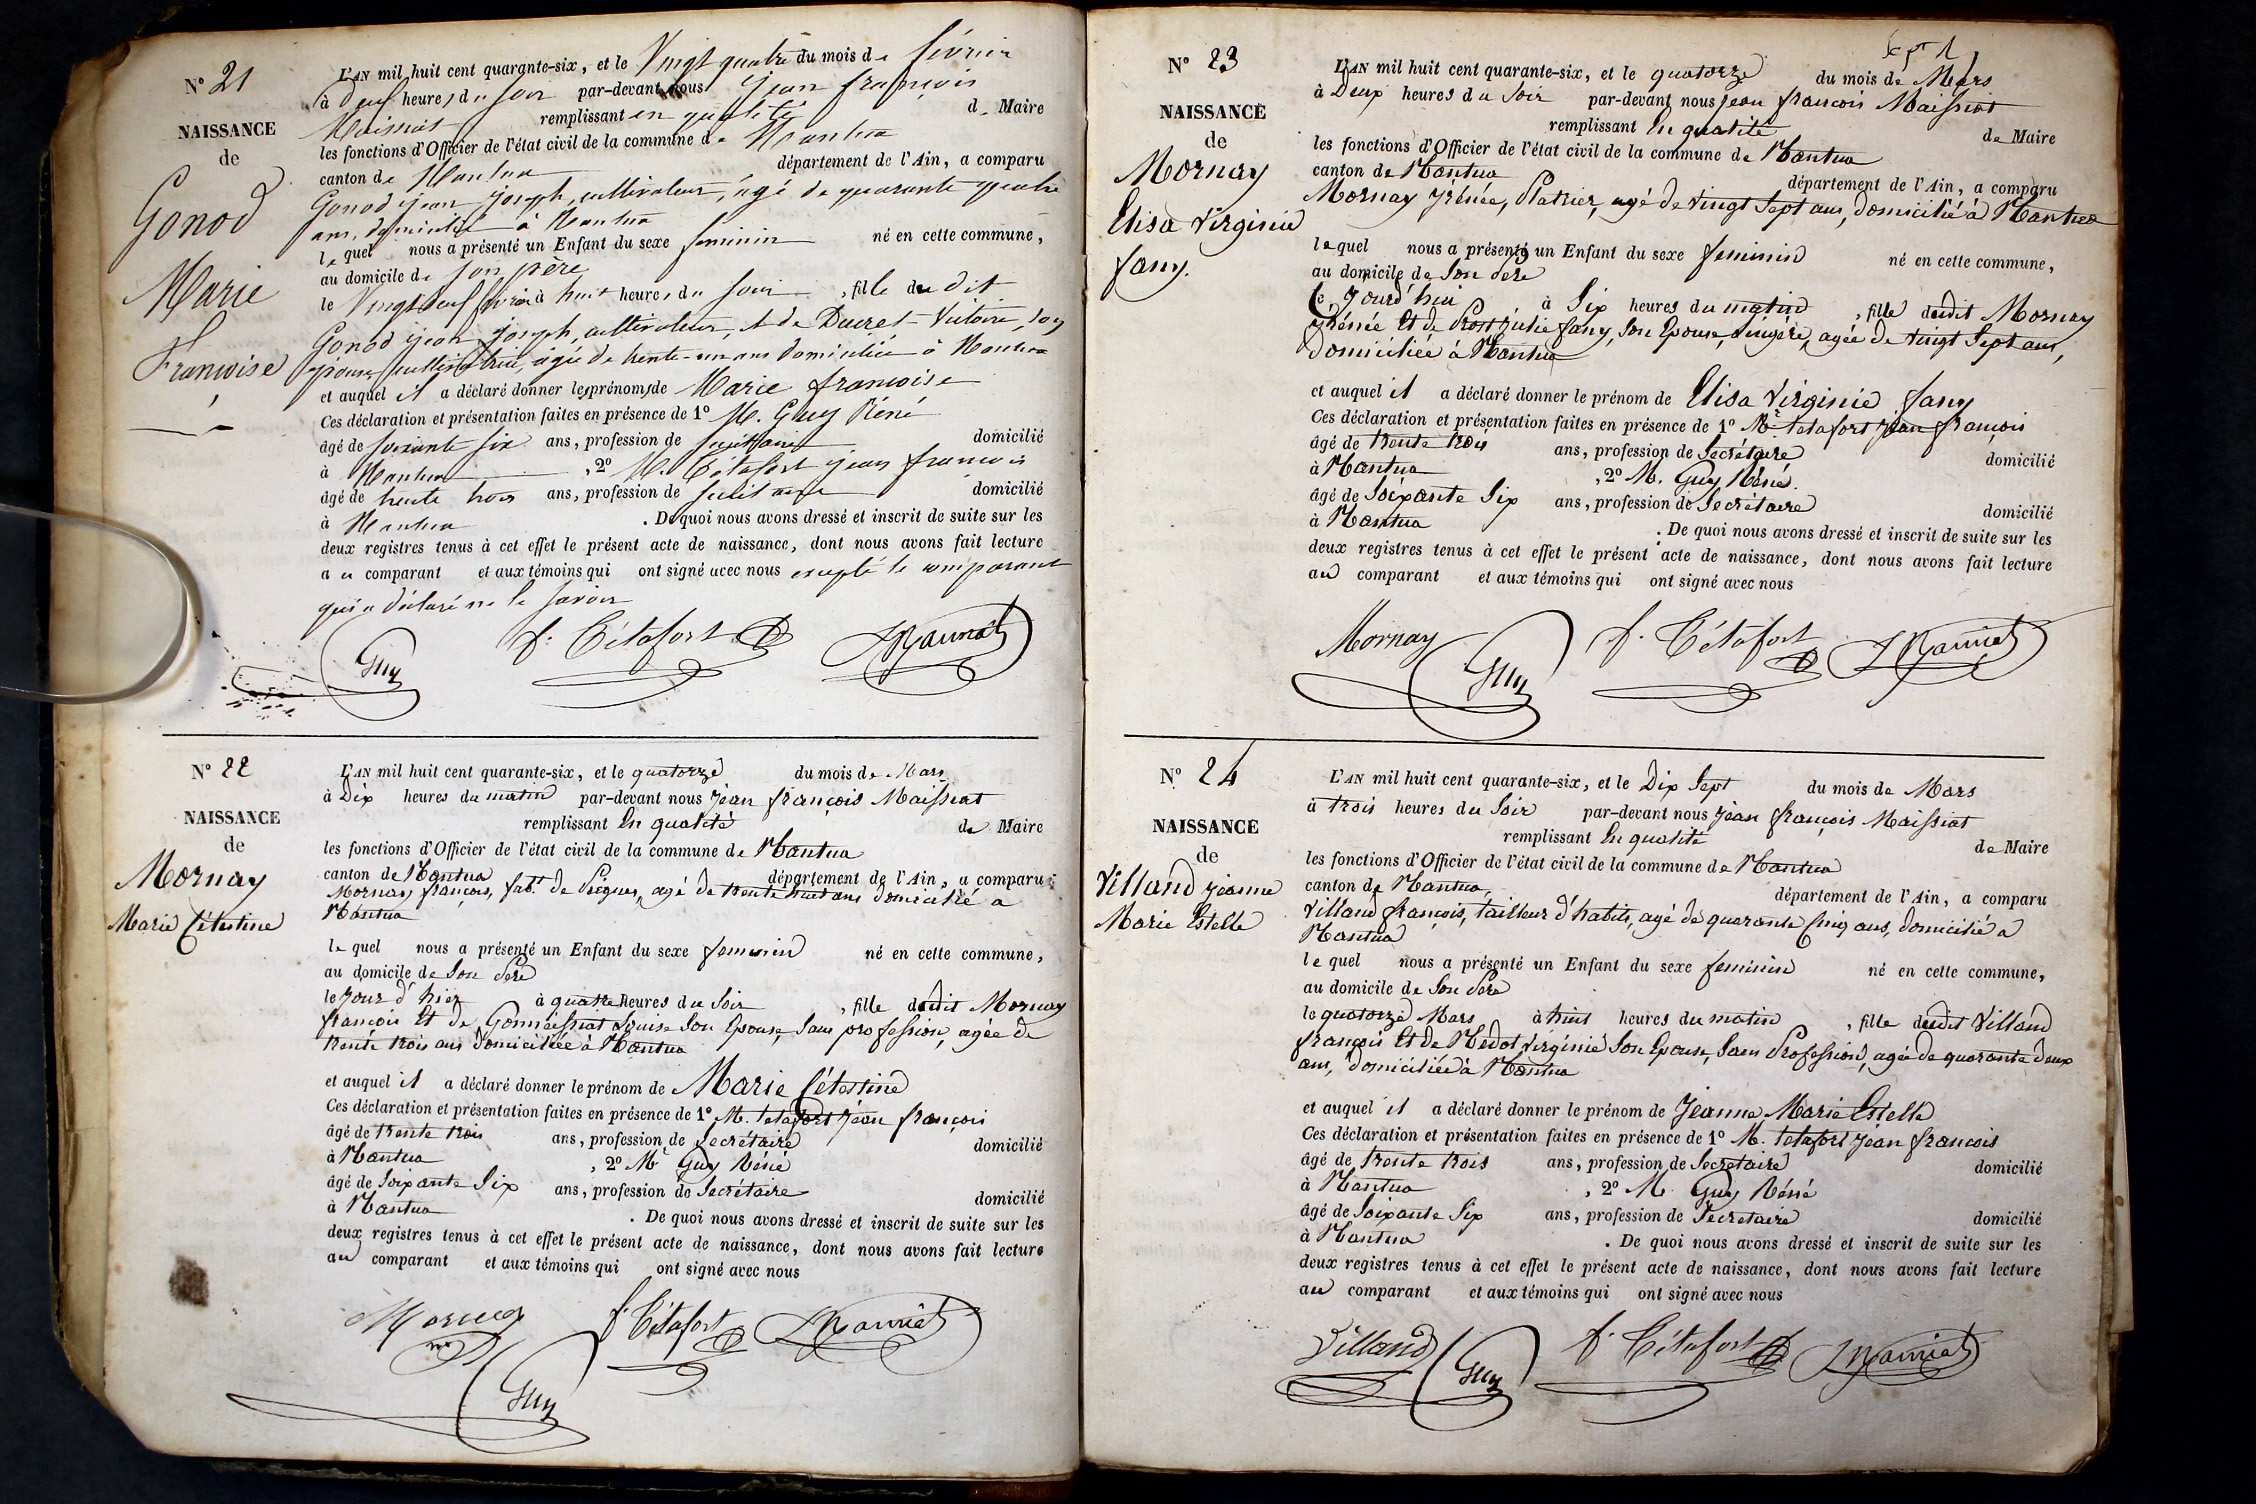 N° 21
NAISSANCE
de
Gonod
Marie
Françoise
L'AN mil huit cent quarante-six, et le Vingt quatre du mois de février
à deux heures du soir par-devant nous jean françois
Maissiat remplissant en qualité de Maire
les fonctions d'Officier de l'état civil de la commune de Nantua
canton de Nantua département de l'Ain, a comparu
Gonod jean joseph, cultivateur, âgé de quarante quatre
ans, domicilié à Nantua
lequel nous a présenté un Enfant du sexe feminin né en cette commune,
au domicile de son père
le Vingt deux février à huit heures du soir, fille du dit
Gonod jean joseph, cultivateur, et de Ducret Victoire, son
épouse, cultivatrice, âgée de trente-un ans domiciliée à Nantua
et auquel il a déclaré donner les prénoms de Marie françoise
Ces déclaration et présentation faites en présence de 1° M. Guy Réné
âgé de soixante six ans, profession de secrétaire domicilié
à Nantua, 2° M. Tétafort jean françois
âgé de trente trois ans, profession de secrétaire domicilié
à Nantua. De quoi nous avons dressé et inscrit de suite sur les
deux registres tenus à cet effet le présent acte de naissance, dont nous avons fait lecture
au comparant et aux témoins qui ont signé avec nous excepté le comparant
qui a déclaré ne le savoir
Guy f. Tétafort Maissiat
N° 22
NAISSANCE
de
Mornay
Marie Célestine
L'AN mil huit cent quarante-six, et le quatorze du mois de Mars
à Dix heures du matin par-devant nous jean françois Maissiat
remplissant En qualité de Maire
les fonctions d'Officier de l'état civil de la commune de Nantua
canton de Nantua département de l'Ain, a comparu
Mornay françois, fabt. de Peignes, agé de trente huit ans domicilié a
Nantua
lequel nous a présenté un Enfant du sexe feminin né en cette commune,
au domicile de Son Père
le jour d'hier à quatre heures du Soir, fille dudit Mornay
françois Et de Gonnessiat Louise Son Epouse, Sans profession, agée de
trente trois ans domiciliée à Nantua
et auquel il a déclaré donner le prénom de Marie Célestine
Ces déclaration et présentation faites en présence de 1° M. tetafort jean françois
âgé de trente trois ans, profession de Secrétaire domicilié
à Nantua, 2° Mr Guy Réné
âgé de Soixante Six ans, profession de Secrétaire domicilié
à Nantua. De quoi nous avons dressé et inscrit de suite sur les
deux registres tenus à cet effet le présent acte de naissance, dont nous avons fait lecture
au comparant et aux témoins qui ont signé avec nous
Mornay f. Tétafort Maissiat
Guy
N° 23
NAISSANCE
de
Mornay
Elisa Virginie
fany.
L'AN mil huit cent quarante-six, et le quatorze du mois de Mars
à Deux heures du Soir par-devant nous jean françois Maissiat
remplissant En qualité de Maire
les fonctions d'Officier de l'état civil de la commune de Nantua
canton de Nantua département de l'Ain, a comparu
Mornay Jrénée, Platrier, agé de vingt Sept ans, domicilié à Nantua
lequel nous a présenté un Enfant du sexe feminin né en cette commune,
au domicile de Son Père
Ce Jourd'hui à Six heures du matin, fille dudit Mornay
jrénée Et de Prost julie fany, Son Epouse, lingère, agée de vingt Sept ans,
domiciliée à Nantua
et auquel il a déclaré donner le prénom de Elisa Virginie fany
Ces déclaration et présentation faites en présence de 1° Mr. tetafort jean françois
âgé de trente trois ans, profession de Secrétaire domicilié
à Nantua, 2° M. Guy Réné.
âgé de Soixante Six ans, profession de Secrétaire domicilié
à Nantua. De quoi nous avons dressé et inscrit de suite sur les
deux registres tenus à cet effet le présent acte de naissance, dont nous avons fait lecture
au comparant et aux témoins qui ont signé avec nous
Mornay Guy f. Tétafort Maissiat
N° 24
NAISSANCE
de
Villand jeanne
Marie Estelle
L'AN mil huit cent quarante-six, et le Dix Sept du mois de Mars
à trois heures du Soir par-devant nous jean françois Maissiat
remplissant En qualité de Maire
les fonctions d'Officier de l'état civil de la commune de Nantua
canton de Nantua département de l'Ain, a comparu
Villand françois, tailleur d'habits, agé de quarante Cinq ans, domicilié a
Nantua
lequel nous a présenté un Enfant du sexe feminin né en cette commune,
au domicile de Son Père
le quatorze Mars à huit heures du matin, fille dudit Villand
françois Et de Médot virginie Son Epouse, Sans Profession, agée de quarante deux
ans, domiciliée à Nantua
et auquel il a déclaré donner le prénom de Jeanne Marie Estelle
Ces déclaration et présentation faites en présence de 1° M. tetafort jean françois
âgé de trente trois ans, profession de Secretaire domicilié
à Nantua, 2° M. Guy Réné
âgé de Soixante Six ans, profession de Secretaire domicilié
à Nantua. De quoi nous avons dressé et inscrit de suite sur les
deux registres tenus à cet effet le présent acte de naissance, dont nous avons fait lecture
au comparant et aux témoins qui ont signé avec nous
Villand Guy f. Tétafort Maissiat